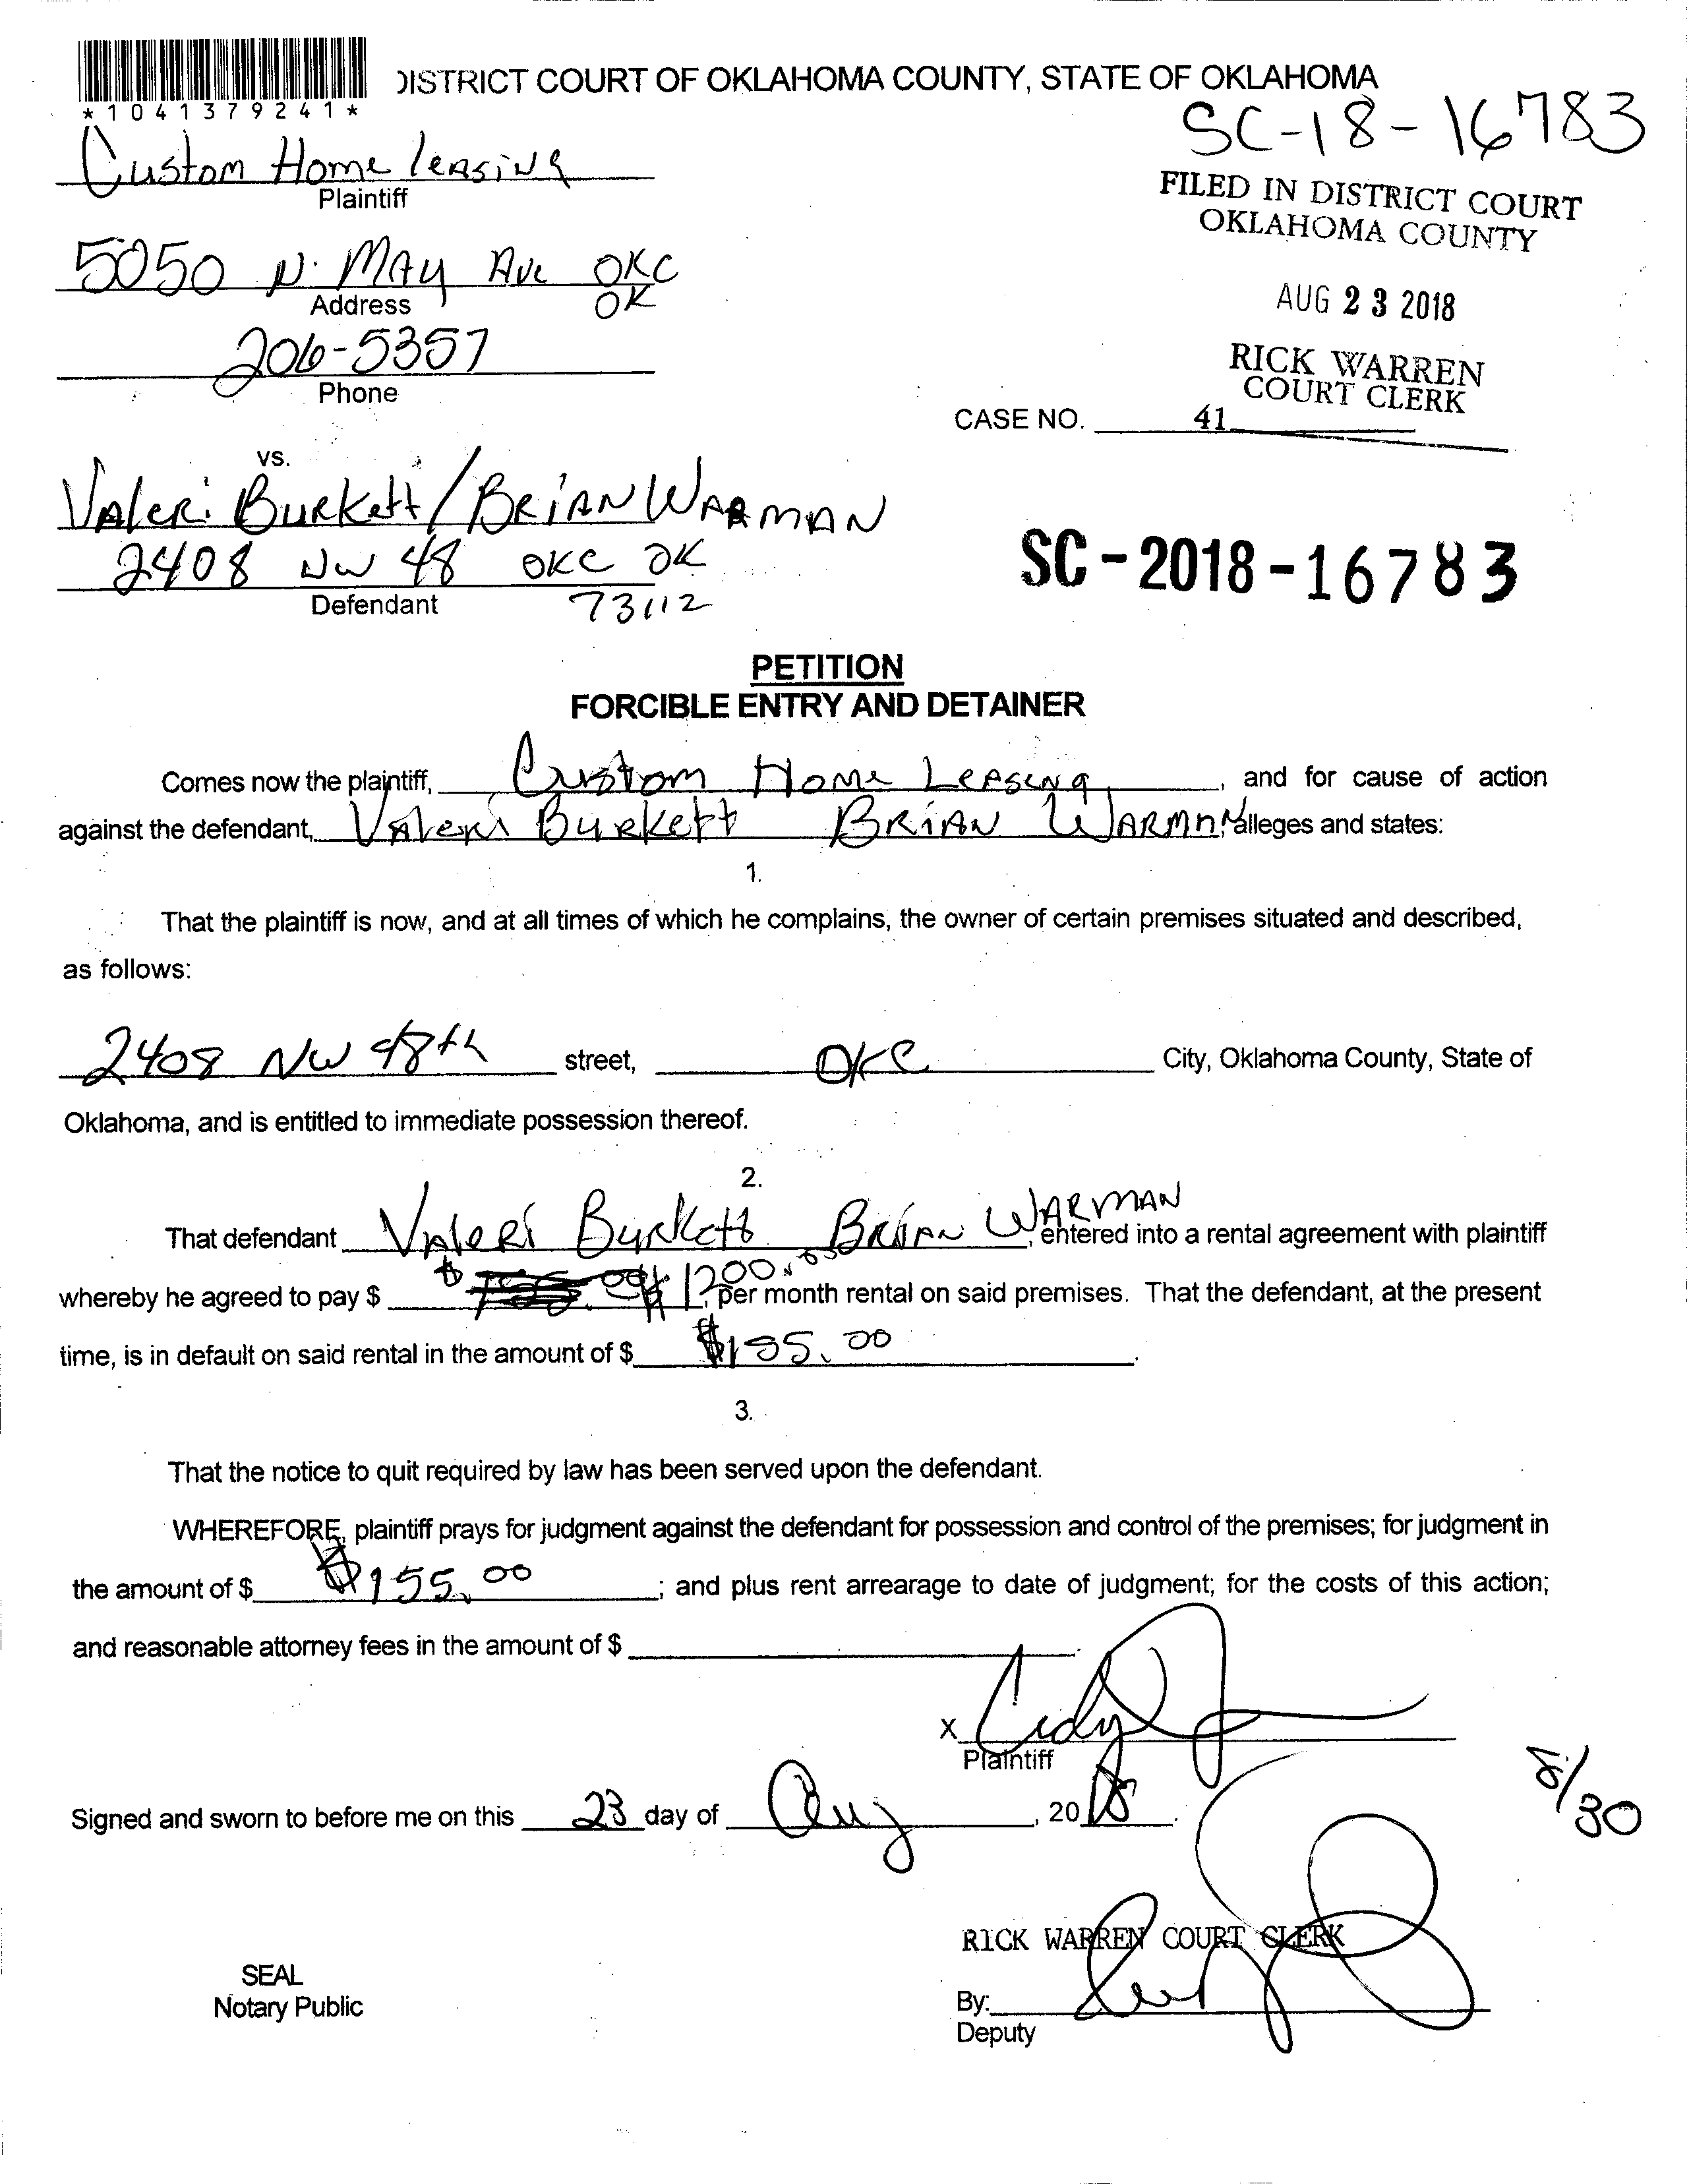 DISTRICT COURT OF OKLAHOMA COUNTY, STATE OF OKLAHOMA
*1041379241*
SC-18-16783
Custom Home leasing
Plaintiff
FILED IN DISTRICT COURT
OKLAHOMA COUNTY
5050 N. MAY Ave OKC
OK
Address
AUG 23 2018
206-5357
Phone
RICK WARREN
COURT CLERK
CASE NO. 41
vs.
Valeri Burkett/BRIAN WARMAN
2408 NW 48 OKC OK
Defendant 73112
SC-2018-16783
PETITION
FORCIBLE ENTRY AND DETAINER
Comes now the plaintiff, Custom Home Leasing, and for cause of action
against the defendant, Valeri Burkett BRIAN WARMAN, alleges and states:
1.
That the plaintiff is now, and at all times of which he complains, the owner of certain premises situated and described,
as follows:
2408 NW 48th street, OKC City, Oklahoma County, State of
Oklahoma, and is entitled to immediate possession thereof.
2.
That defendant Valeri Burkett Brian WARMAN, entered into a rental agreement with plaintiff
whereby he agreed to pay $ $ 1200.00, per month rental on said premises. That the defendant, at the present
time, is in default on said rental in the amount of $ $155.00.
3.
That the notice to quit required by law has been served upon the defendant.
WHEREFORE, plaintiff prays for judgment against the defendant for possession and control of the premises; for judgment in
the amount of $ $155.00; and plus rent arrearage to date of judgment; for the costs of this action;
and reasonable attorney fees in the amount of $
X
Plaintiff
Signed and sworn to before me on this 23 day of Aug, 2018.
8/30
RICK WARREN COURT CLERK
SEAL
Notary Public
By:
Deputy